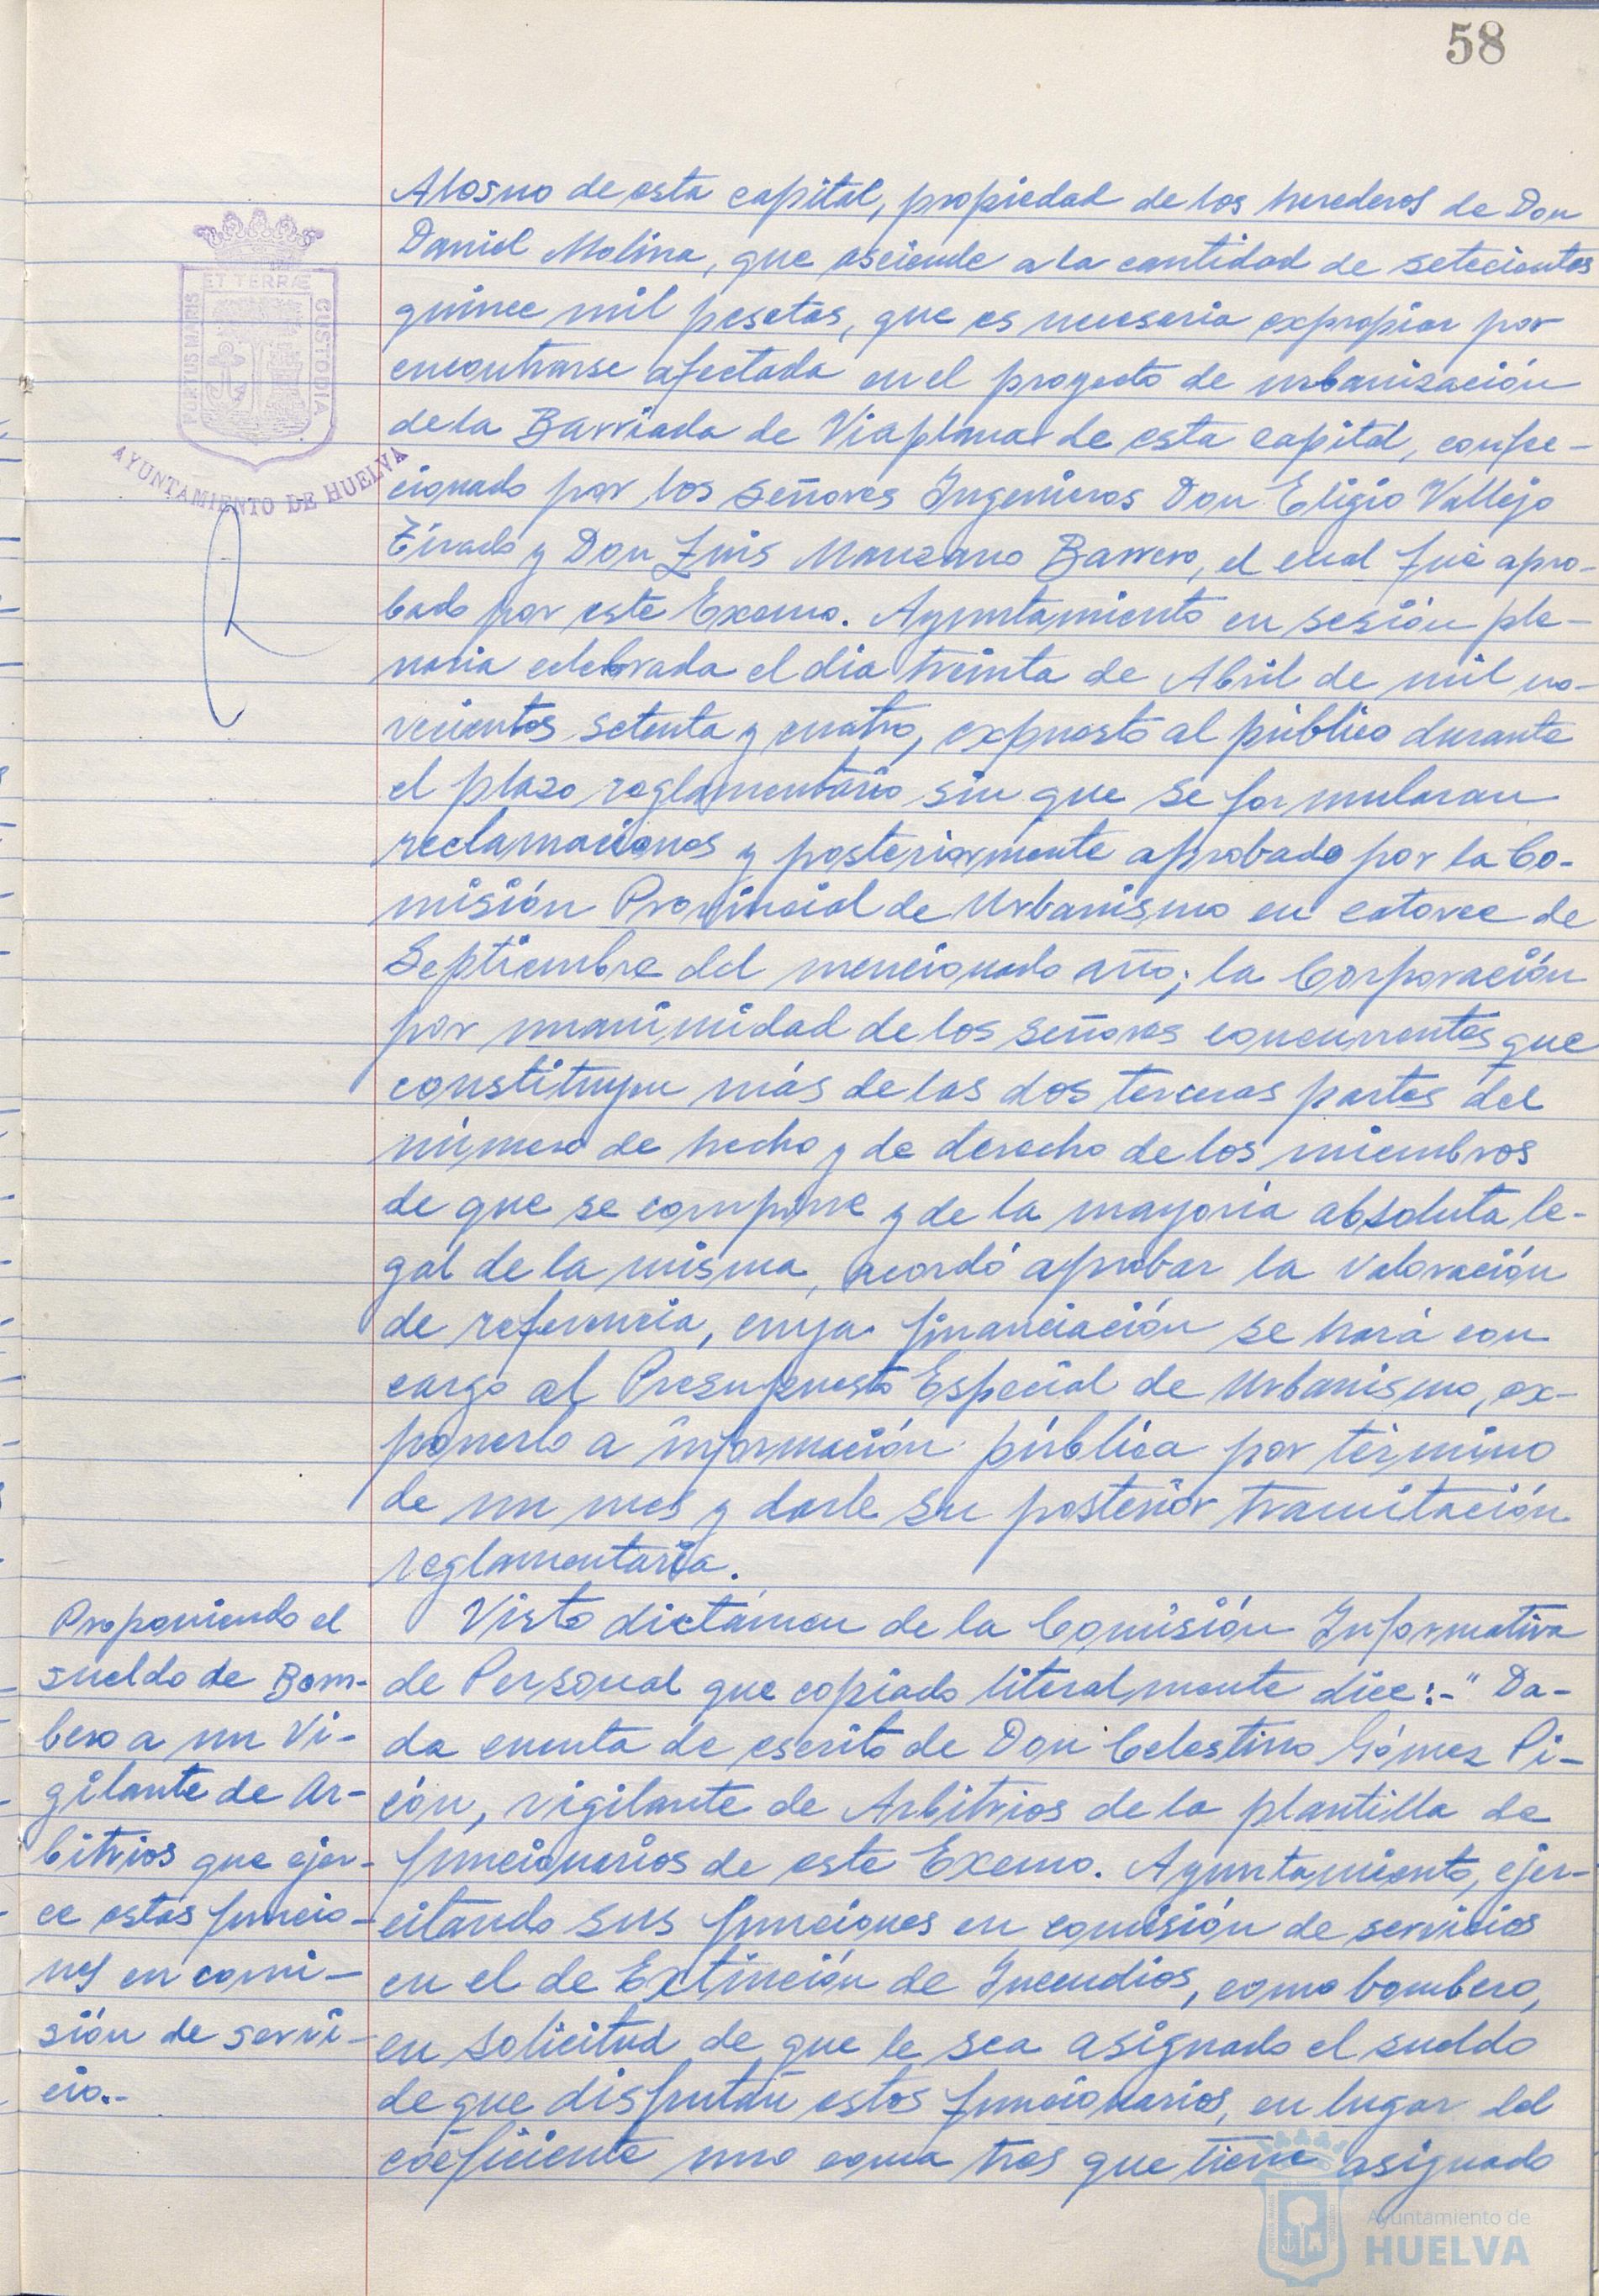 58
Alosno de esta capital, propiedad de los herederos de Don
Daniel Molina, que asciende a la cantidad de setecientas
quince mil pesetas, que es necesaria expropiar por
encontrarse afectada en el proyecto de urbanización
de la Barriada de Viaplana de esta capital, confec-
cionado por los señores Ingenieros Don Eligio Vallejo
Tirado y Don Luis Manzano Barrero, el cual fué apro-
bado por este Excmo. Ayuntamiento en sesión ple-
naria celebrada el dia treinta de Abril de mil no-
vecientos setenta y cuatro, expuesto al público durante
el plazo reglamentario sin que se formularan
reclamaciones y posteriormente aprobado por la Co-
misión Provincial de Urbanismo en catorce de
Septiembre del mencionado año; la Corporación
por unanimidad de los señores concurrentes que
constituyen más de las dos terceras partes del
número de hecho y de derecho de los miembros
de que se compone y de la mayoría absoluta le-
gal de la misma, acordó aprobar la valoración
de referencia, cuya financiación se hará con
cargo al Presupuesto Especial de Urbanismo, ex-
ponerlo a información pública por término
de un mes y darle su posterior tramitación
reglamentaria.
Visto dictámen de la Comisión Informativa
de Personal que copiado literalmente dice:-" Da-
da cuenta de escrito de Don Celestino Gómez Pi-
cón, vigilante de Arbitrios de la plantilla de
funcionarios de este Excmo. Ayuntamiento, ejer-
citando sus funciones en comisión de servicios
en el de Extinción de Incendios, como bombero,
en solicitud de que le sea asignado el sueldo
de que disfrutan estos funcionarios, en lugar del
coeficiente uno coma tres que tiene asignado
Proponiendo el
sueldo de Bom-
bero a un Vi-
gilante de Ar-
bitrios que ejer-
ce estas funcio-
nes en comi-
sión de servi-
cio.-
PORTUS MARIS
ET TERRÆ
CUSTODIA
AYUNTAMIENTO DE HUELVA
Ayuntamiento de
HUELVA